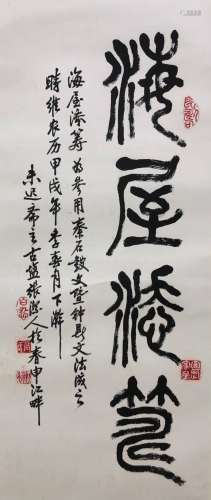 海屋添筹
海屋添筹为参用秦石鼓文暨钟鼎文法成之
时维农历甲戌年季春月下浣
未迟斋主古盐张 人于春申江畔